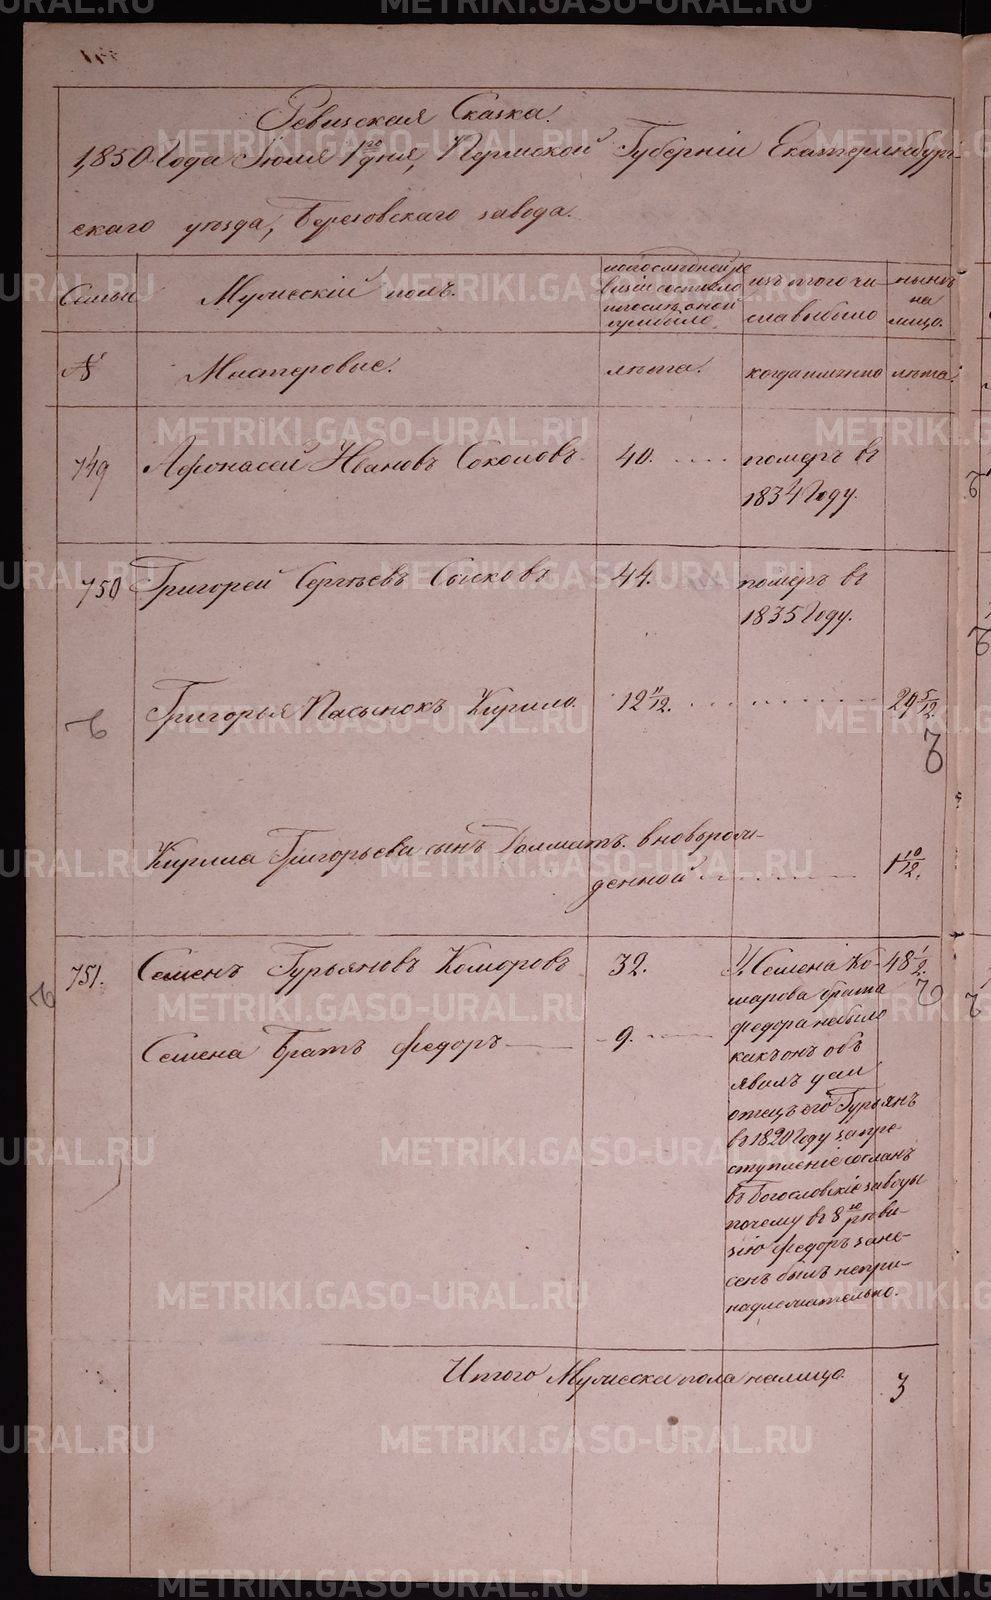 Ревизская Сказка.
1850 Года Июля 1го дня, Пермской Губерніи Екатеринбург-
скаго уѣзда, Березовскаго завода.
Семьи
Мужескій полъ.
По последней ре
визіи состояло
и после оной
прибыло
изъ того чи
сла выбыло
нынѣ
на
лицо.
№
Мастеровые.
лѣта.
когда именно
лѣта.
749
Афонасей Ивановъ Соколовъ
40.
померъ въ
1834 Году.
750
Григорей Сергѣевъ Сысковъ
44.
померъ въ
1835 Году.
Григорья Пасынокъ Кирило.
12 11/12.
29 5/12.
Кирила Григорьева сынъ Долматъ вновьрож-
денной
1 10/12.
751.
Семенъ Гурьяновъ Комаровъ
32.
У Семена Ко-
48 1/2.
марова брата
Семена Братъ Федоръ
9.
Федора небыло
какъ онъ объ
явилъ
отецъ его Гурьянъ
въ 1820 Году за пре-
ступленіе сосланъ
въ Богословскіе заводы
почему въ 8ю реви-
зію Федоръ зане-
сенъ былъ непри-
надлежательно.
Итого Мужеска пола налицо.
3
METRIKI.GASO-URAL.RU